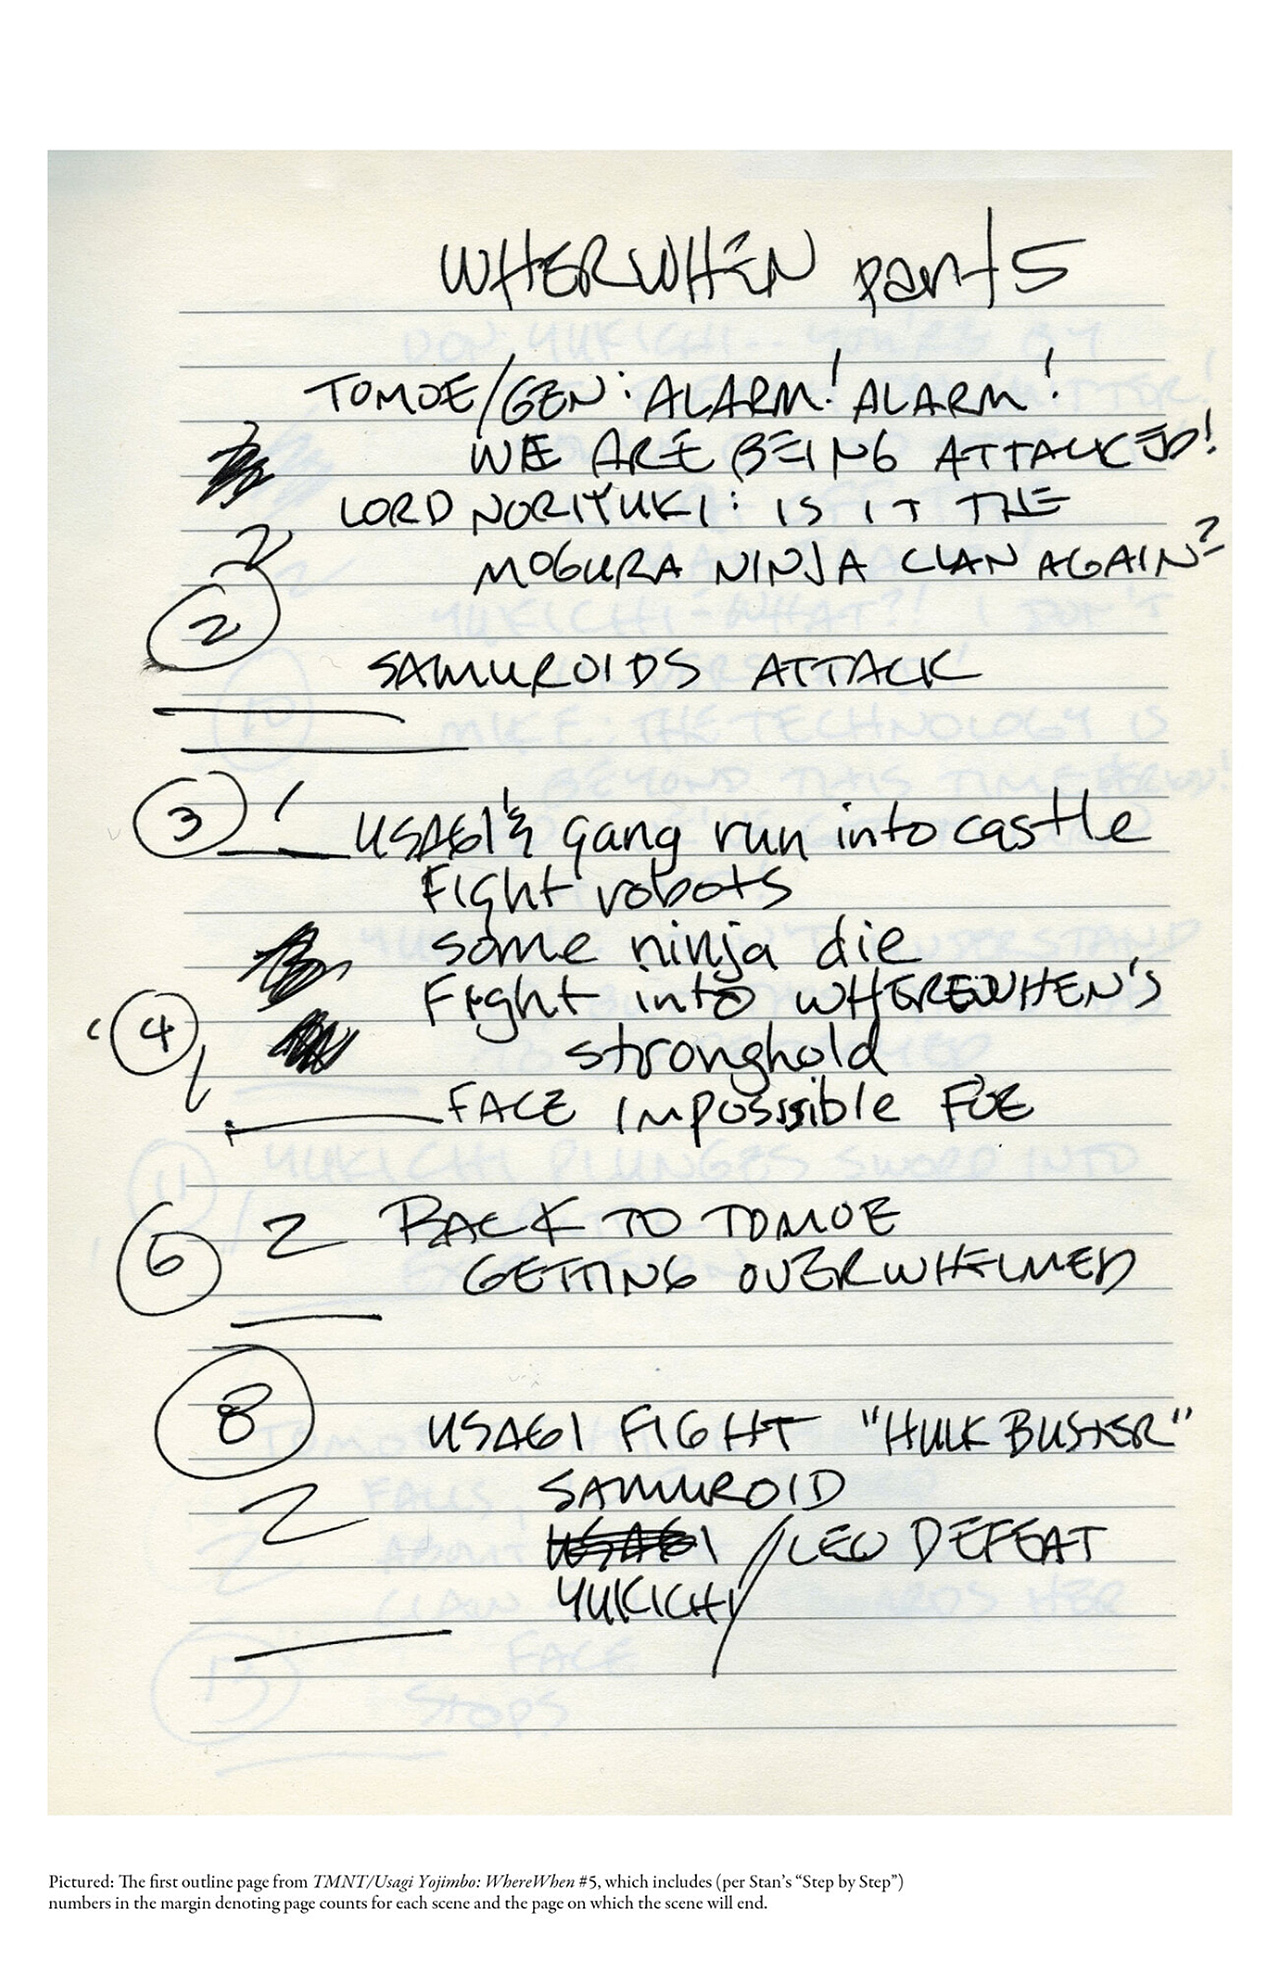 WHERWHEN part 5
TOMOE/GEN: ALARM! ALARM!
WE ARE BEING ATTACKED!
LORD NORIYUKI: IS IT THE
MOGURA NINJA CLAN AGAIN?
2
2
SAMUROIDS ATTACK
3 1 USAGI'S gang run into castle
Fight robots
some ninja die
Fight into WHEREWHEN'S
4 stronghold
1 FACE Impossible FOE
6 2 BACK TO TOMOE
GETTING OVERWHELMED
8
USAGI FIGHT "HULK BUSTER"
2 SAMUROID
USAGI /LEO DEFEAT
YUKICHI
Pictured: The first outline page from TMNT/Usagi Yojimbo: WhereWhen #5, which includes (per Stan's “Step by Step”)
numbers in the margin denoting page counts for each scene and the page on which the scene will end.